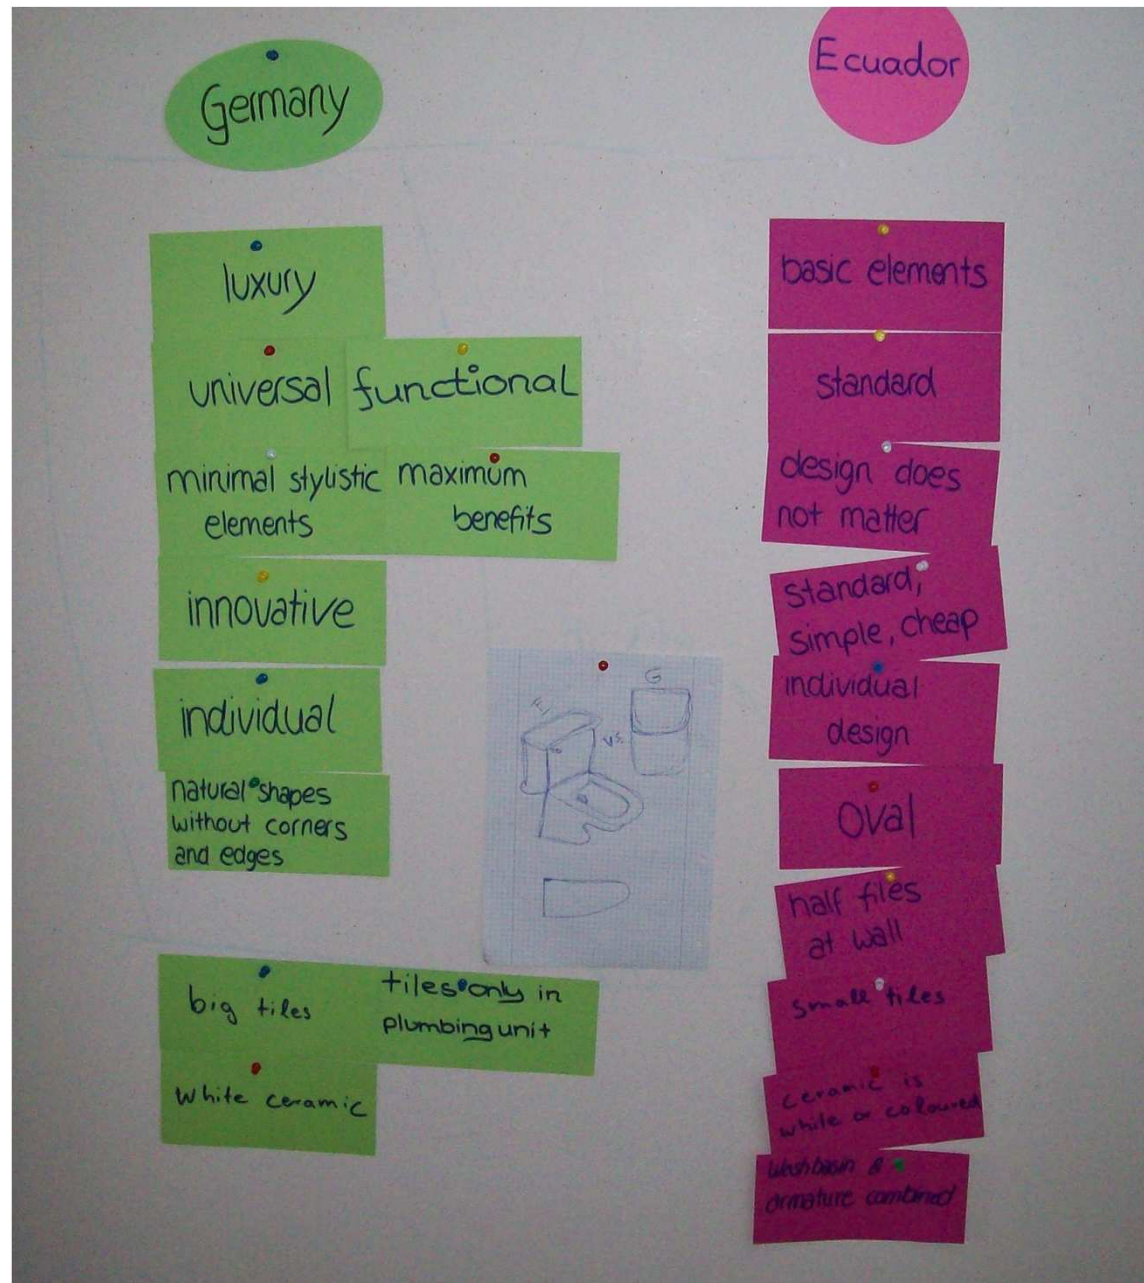 Germany
luxury
universal
functional
minimal stylistic
elements
maximum
benefits
innovative
individual
natural shapes
without corners
and edges
big tiles
tiles only in
plumbing unit
white ceramic
E
vs.
G
Ecuador
basic elements
standard
design does
not matter
standard,
simple, cheap
individual
design
oval
half tiles
at wall
small tiles
ceramic is
white or coloured
washbasin &
armature combined